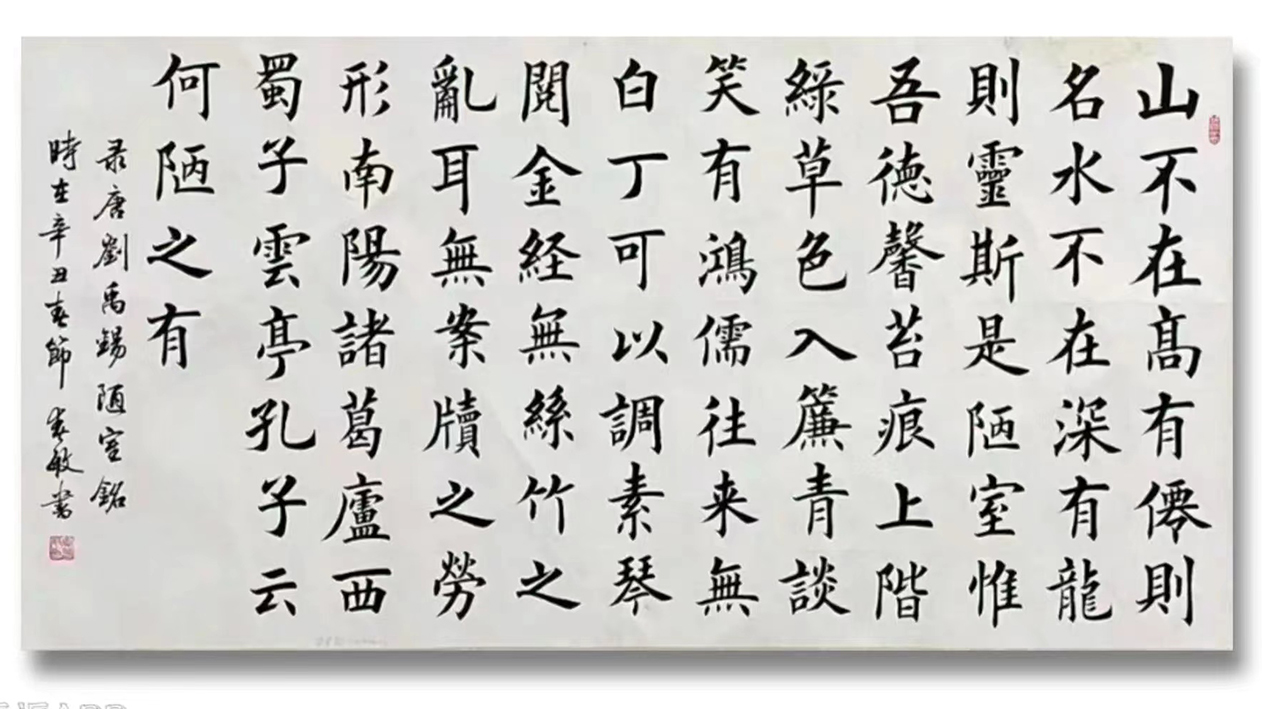 山不在高有僊則
名水不在深有龍
則靈斯是陋室惟
吾德馨苔痕上階
綠草色入簾青談
笑有鴻儒往来無
白丁可以調素琴
閱金経無絲竹之
亂耳無案牘之勞
形南陽諸葛廬西
蜀子雲亭孔子云
何陋之有
录唐劉禹錫陋室銘
時在辛丑春節 敏書